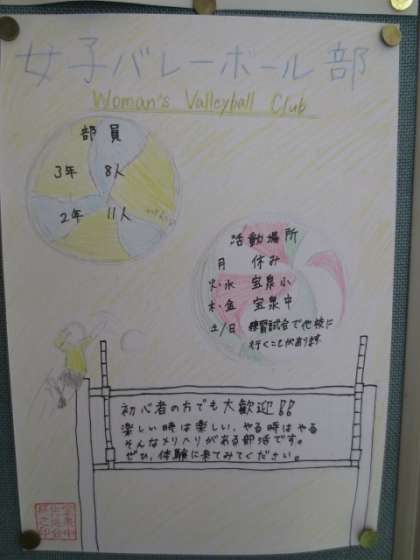 女子バレーボール部
Woman's Valleyball Club
部員
3年 8人
2年 11人
活動場所
月 休み
火・水 宝泉小
木・金 宝泉中
土/日 練習試合で他校に
行くことがあります
初心者の方でも大歓迎!!
楽しい時は楽しい、やる時はやる
そんなメリハリがある部活です。
ぜひ、体験に来てみてください。